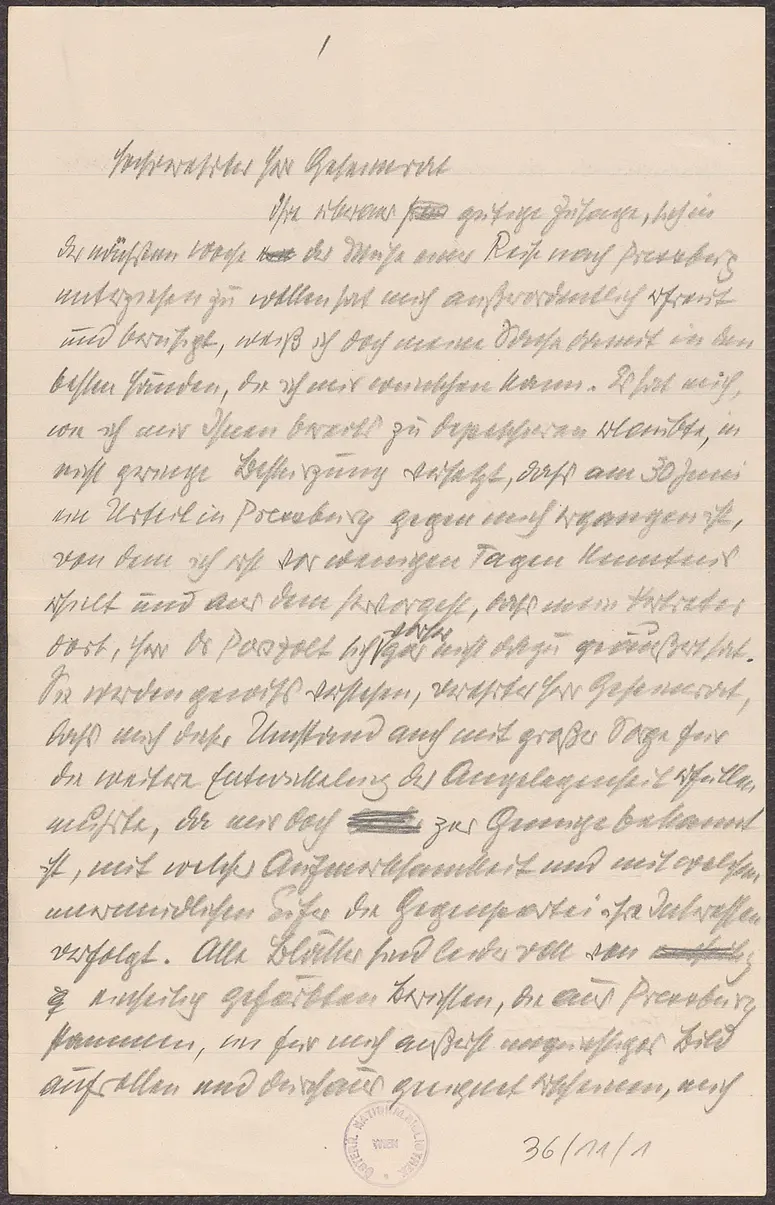 1
Hochverehrter Herr Geheimrat
Ihre überaus gütige Zusage, sich in
der nächsten Woche der Mühe einer Reise nach Pressburg
unterziehen zu wollen hat mich außerordentlich erfreut
und beruhigt, weiß ich doch meine Sache damit in den
besten Händen, die ich mir wünschen kann. Es hat mich,
wie ich mir Ihnen bereits zu depeschieren erlaubte, in
nicht geringe Bestürzung versetzt, dass am 30 Juni
ein Urteil in Pressburg gegen mich ergangen ist,
von dem ich erst vor wenigen Tagen Kenntnis
erhielt und aus dem hervorgeht, dass mein Vertreter
dort, Herr Dr sich gar nicht dazu geäußert hat.
Sie werden gewiss verstehen, verehrter Herr Geheimrat,
dass mich dieser Umstand auch mit großer Sorge für
die weitere Entwickelung der Angelegenheit erfüllen
musste, da mir doch zur Genüge bekannt
ist, mit welcher Aufmerksamkeit und mit welchem
unermüdlichen Eifer die Gegenpartei ihre Interessen
verfolgt. Alle Blätter sind leider voll von
einseitig gefärbten Berichten, die aus Pressburg
stammen, ein für mich äußerst ungünstiges Bild
aufrollen und durchaus geeignet erscheinen, mich
ÖSTERR. NATIONALBIBLIOTHEK
WIEN
36/11/1